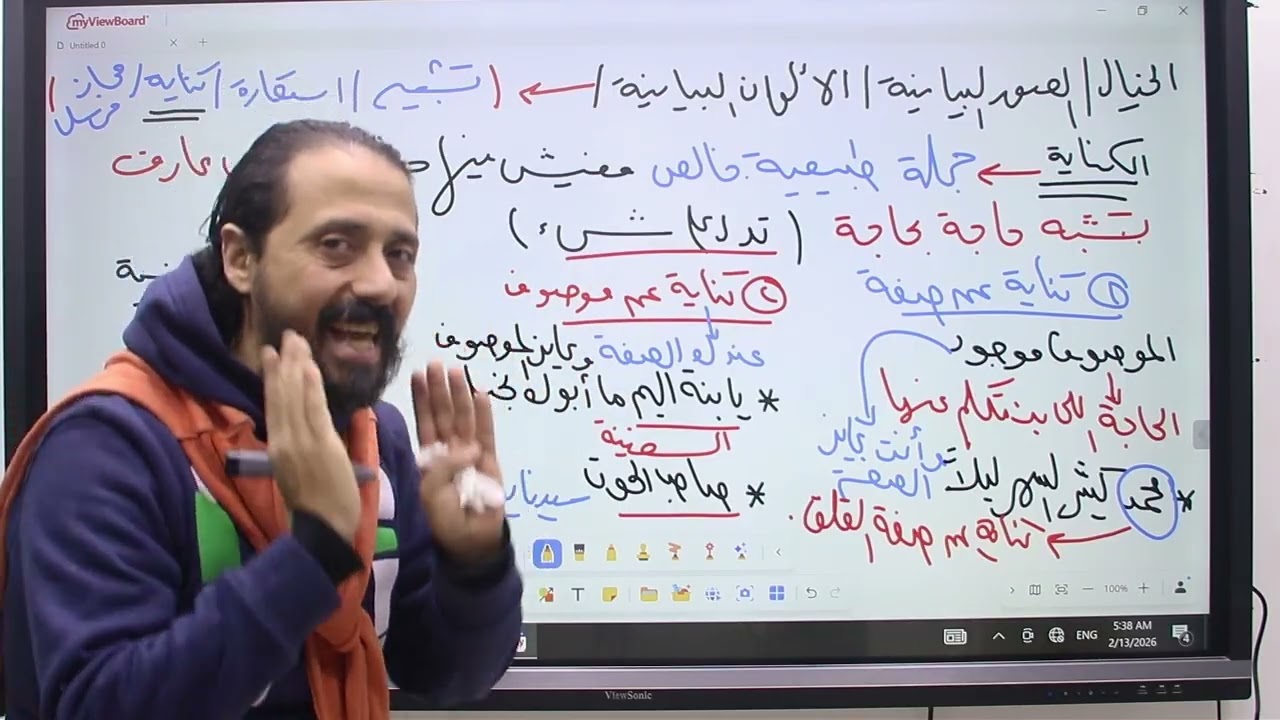 myViewBoard
Untitled 0
الخيال / الصور البيانية / الألوان البيانية / ← (تشبيه / استعارة / كناية / مجاز مرسل)
الكناية ← جملة طبيعية خالص مفيش فيها عارف
بتشبه حاجة بحاجة (تدل على شيء)
١ كناية عن صفة
٢ كناية عن موصوف
الموصوف موجود
الحاجة اللى بنتكلم عنها
وأنت عايز الصفة
* محمد كثير السهر ليلاً
← كناية عن صفة القلق.
عندك الصفة وعايز الموصوف
* يا ابنة اليم ما أبوك
السفينة
* صاحب الحوت
100%
ENG
5:38 AM
2/13/2026
4
ViewSonic